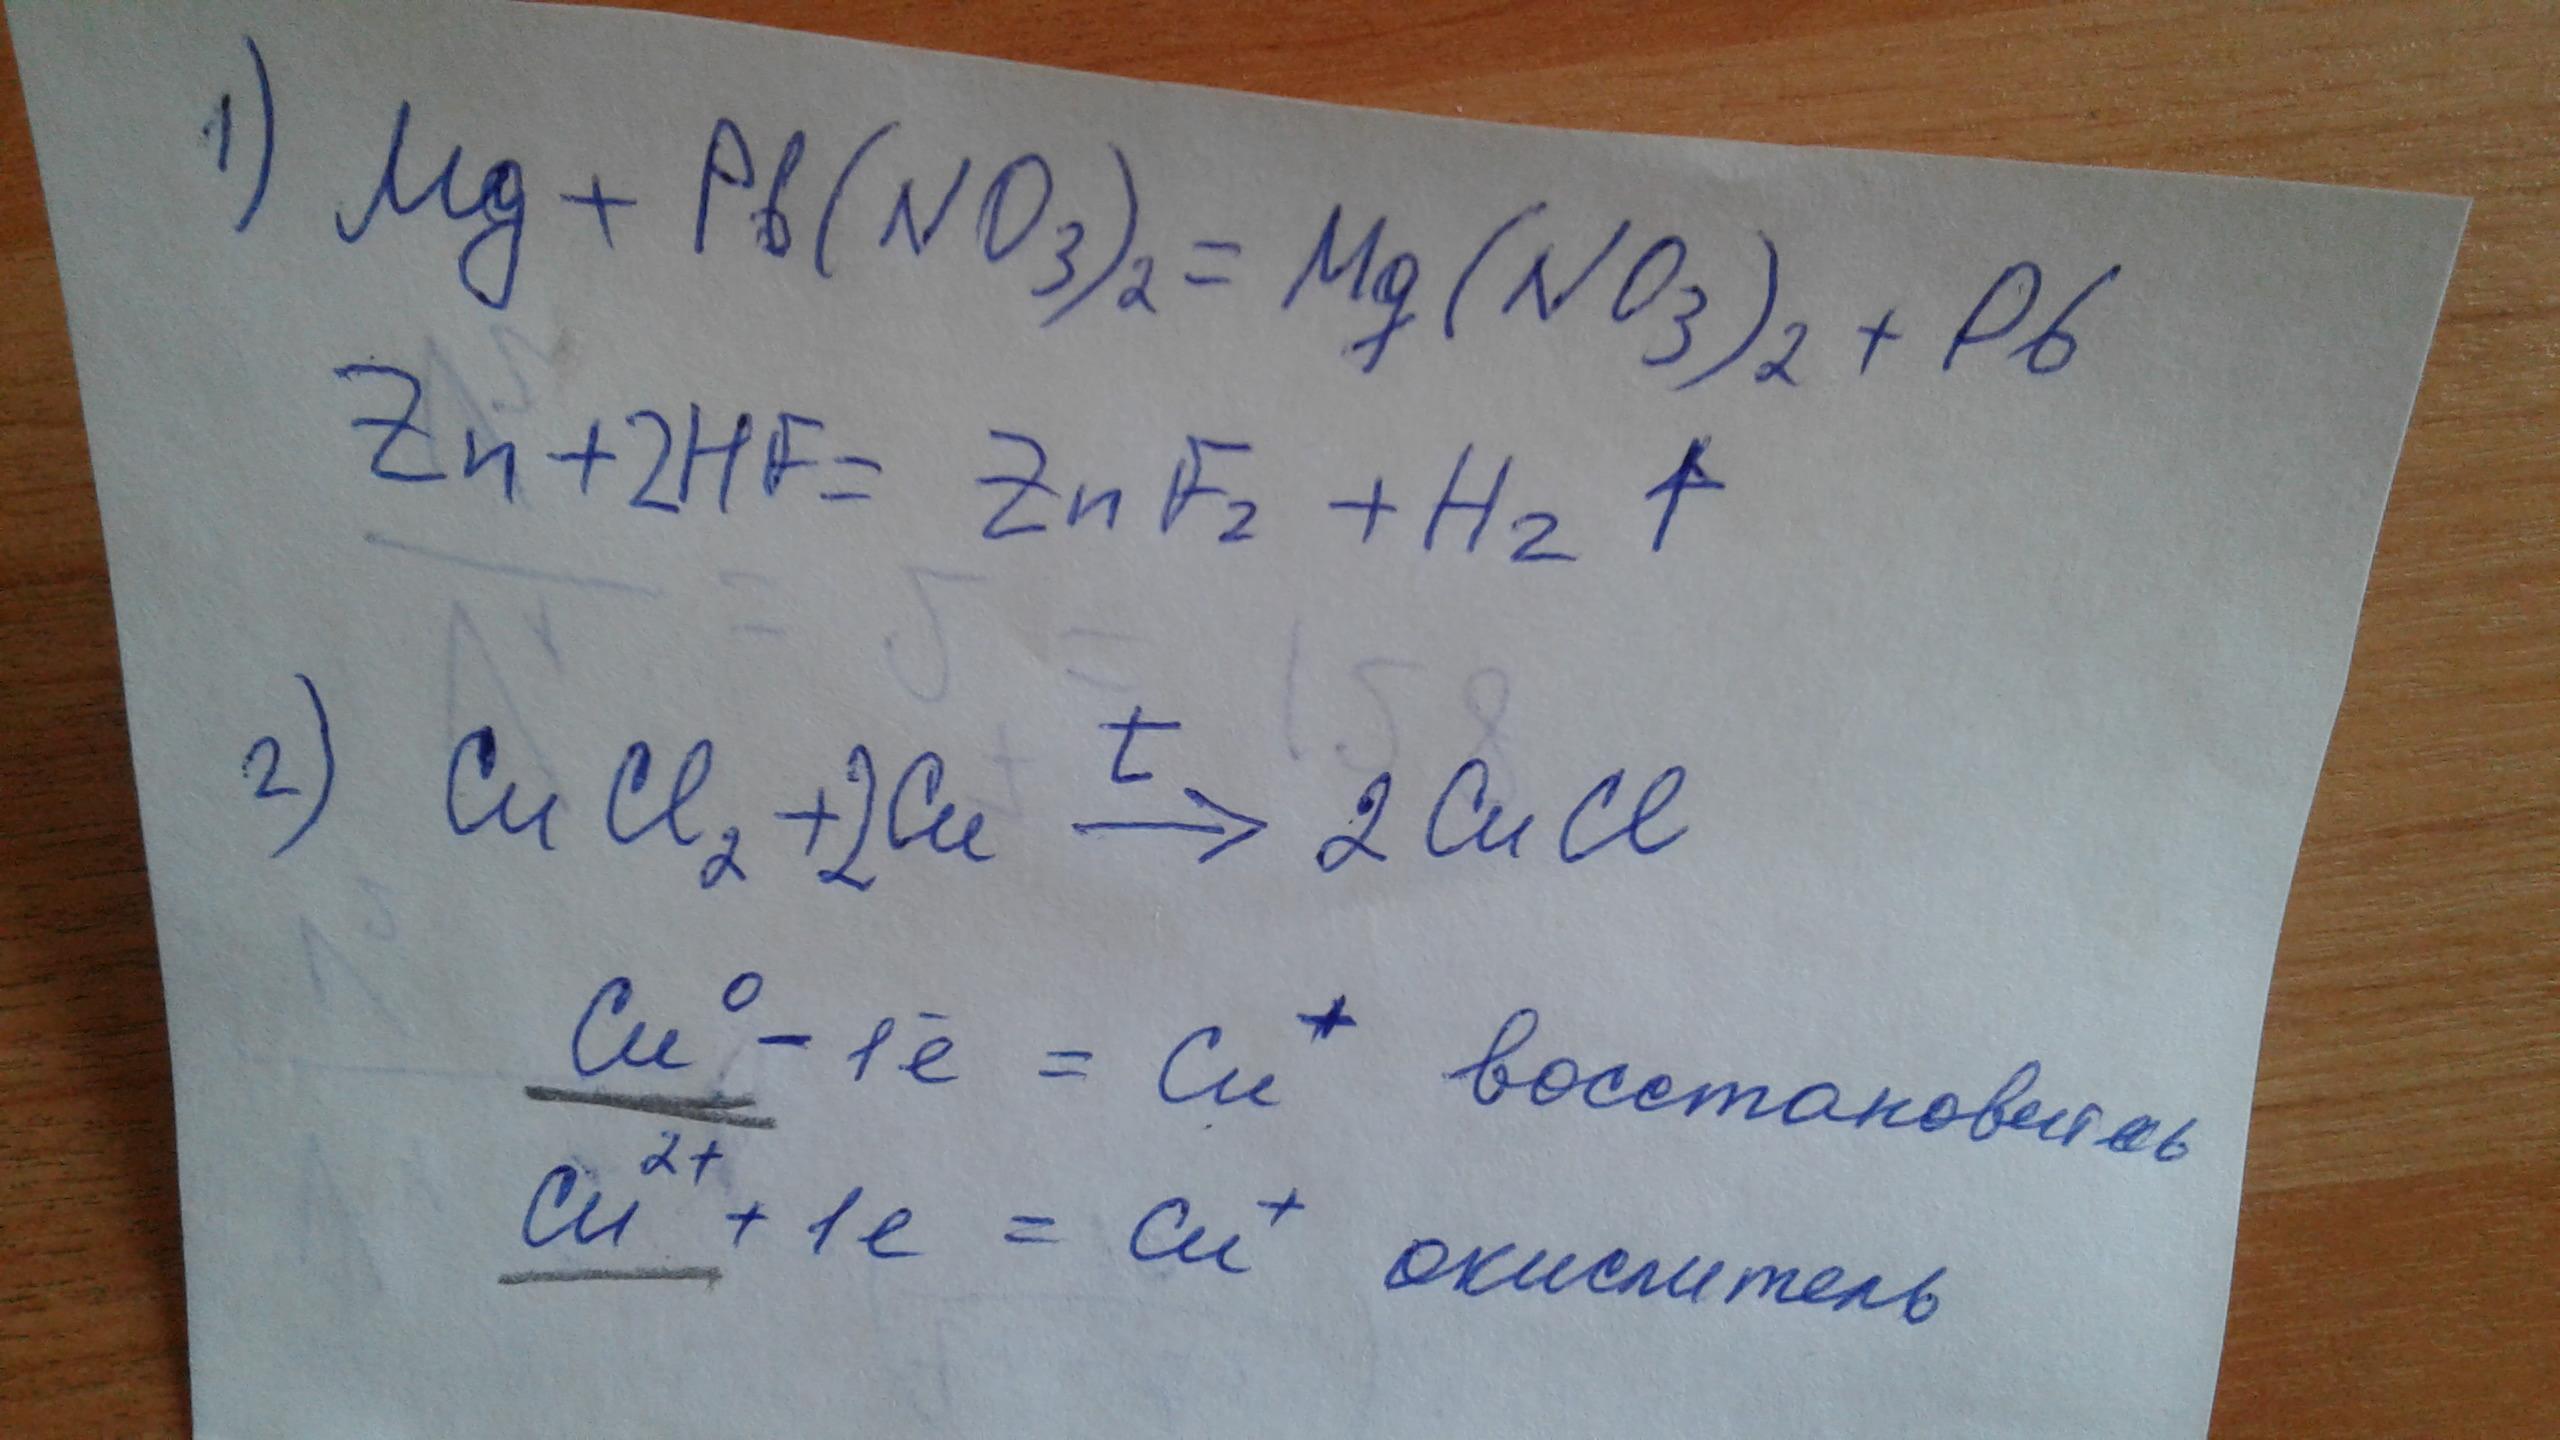 1) Mg + Pb(NO₃)₂ = Mg(NO₃)₂ + Pb
Zn + 2HF = ZnF₂ + H₂ ↑
2) CuCl₂ + 2Cu →ᵗ 2CuCl
Cu⁰ - 1ē = Cu⁺ восстановитель
Cu²⁺ + 1e = Cu⁺ окислитель